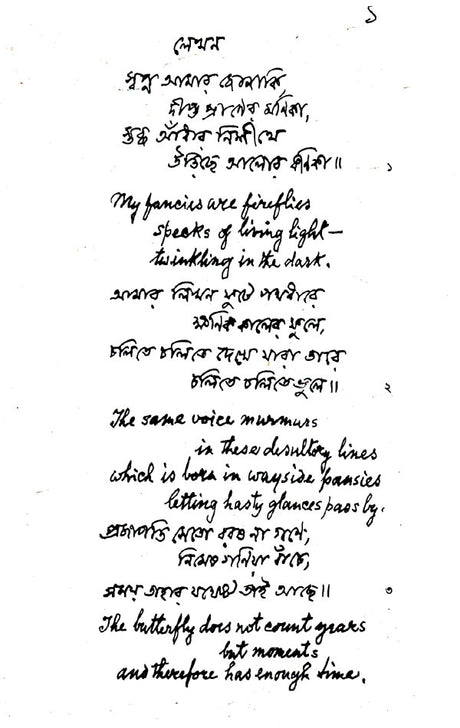 ১
লেখন
স্বপ্ন আমার জোনাকি
দীপ্ত প্রাণের মণিকা,
স্তব্ধ আঁধার নিশীথে
উড়িছে আলোর কণিকা॥ ১
My fancies are fireflies
specks of living light—
twinkling in the dark.
আমার লিখন ফুটে পথধারে
ক্ষণিক কালের ফুলে,
চলিতে চলিতে দেখে যারা তারে
চলিতে চলিতে ভুলে॥ ২
The same voice murmurs
in these desultory lines
which is born in wayside pansies
letting hasty glances pass by.
প্রজাপতি সেতো বরষ না গণে,
নিমেষ গণিয়া বাঁচে,
সময় তাহার যথেষ্ট তাই আছে॥ ৩
The butterfly does not count years
but moments
and therefore has enough time.